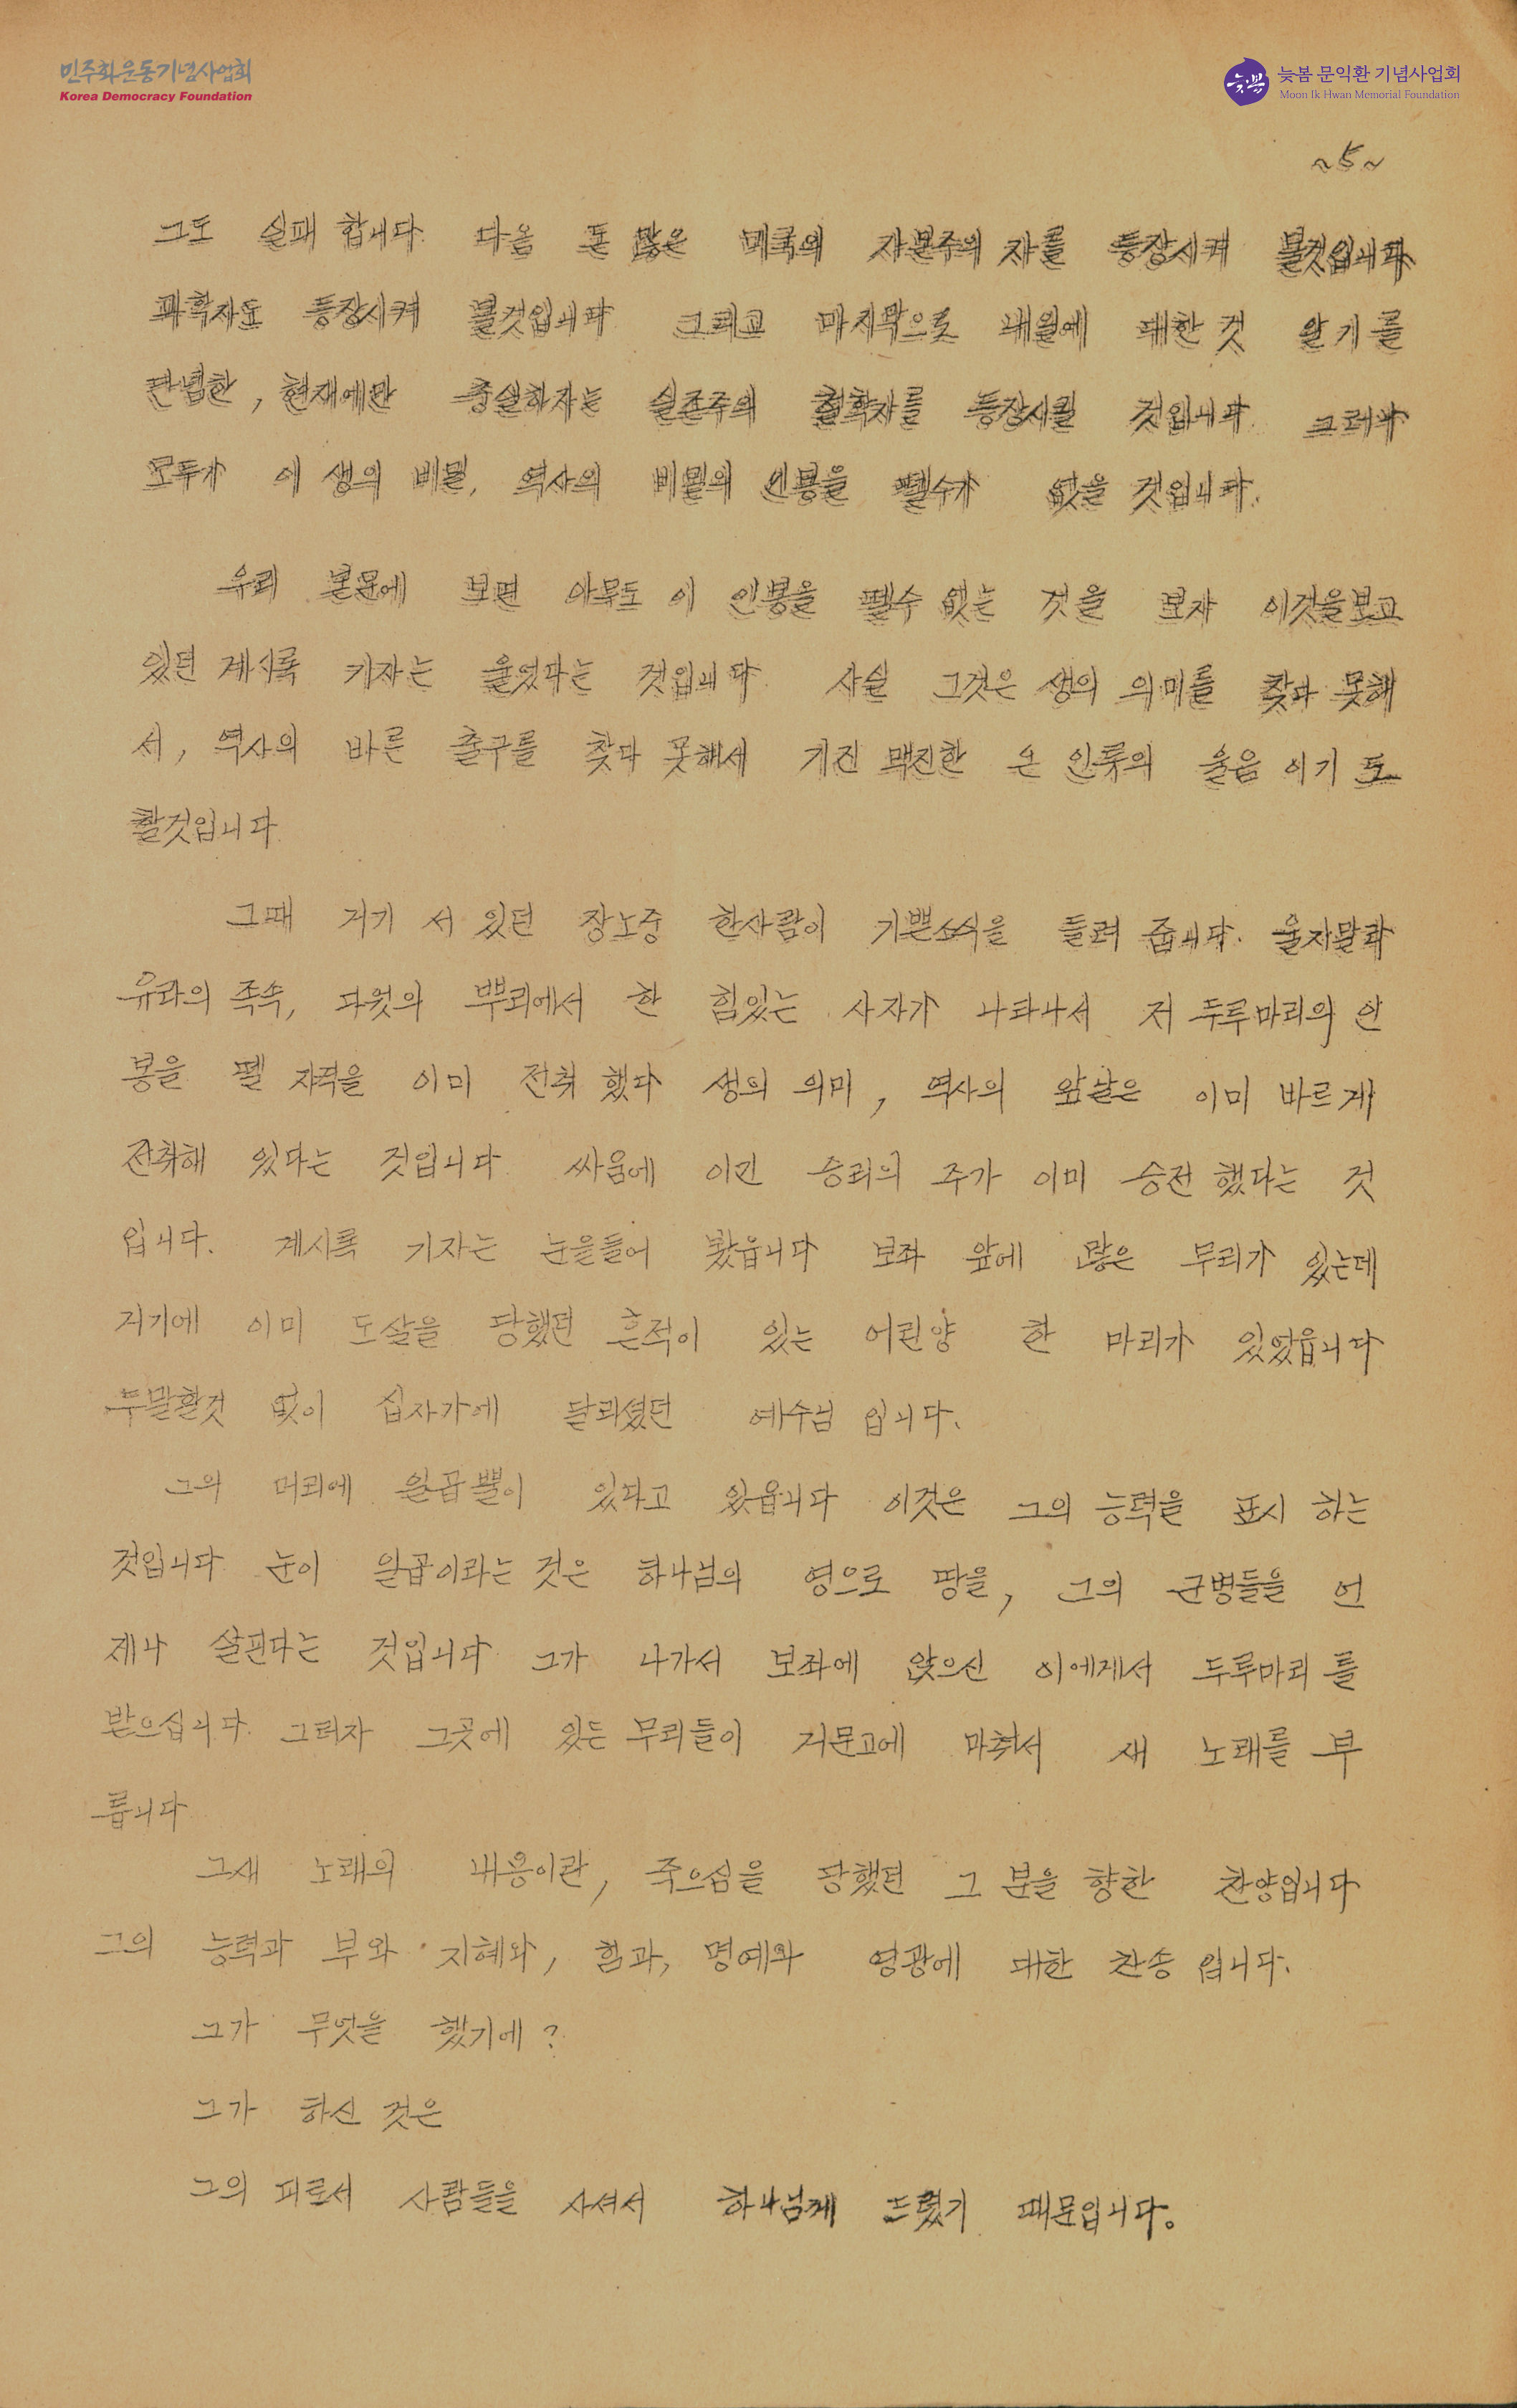 민주화운동기념사업회
Korea Democracy Foundation
늦봄 늦봄 문익환 기념사업회
Moon Ik Hwan Memorial Foundation
~5~
그도 실패 합니다. 다음 돈 많은 미국의 자본주의 자를 등장시켜 볼것입니다
과학자도 등장시켜 볼것입니다 그리고 마지막으로 내일에 대한 것 알기를
단념한, 현재에만 충실하자는 실존주의 철학자를 등장시킬 것입니다. 그러나
모두가 이 생의 비밀, 역사의 비밀의 인봉을 뗄수가 없을 것입니다.
우리 본문에 보면 아무도 이 인봉을 뗄수 없는 것을 보자 이것을보고
있던 계시록 기자는 울었다는 것입니다. 사실 그것은 생의 의미를 찾다 못해
서, 역사의 바른 출구를 찾다 못해서 기진 맥진한 온 인류의 울음 이기 도
할것입니다
그때 거기 서 있던 장노중 한사람이 기쁜소식을 들려 줍니다. 울지말라
유다의 족속, 다윗의 뿌리에서 한 힘있는 사자가 나타나서 저 두루마리의 인
봉을 뗄 자격을 이미 전취 했다 생의 의미, 역사의 앞날은 이미 바르게
전취해 있다는 것입니다 싸움에 이긴 승리의 주가 이미 승전 했다는 것
입니다. 계시록 기자는 눈을들어 봤읍니다 보좌 앞에 많은 무리가 있는데
거기에 이미 도살을 당했던 흔적이 있는 어린양 한 마리가 있었읍니다
두말할것 없이 십자가에 달리셨던 예수님 입니다.
그의 머리에 일곱뿔이 있다고 있읍니다 이것은 그의 능력을 표시 하는
것입니다 눈이 일곱이라는 것은 하나님의 영으로 땅을, 그의 군병들을 언
제나 살핀다는 것입니다 그가 나가서 보좌에 앉으신 이에게서 두루마리 를
받으십니다. 그러자 그곳에 있든 무리들이 거문고에 마춰서 새 노래를 부
릅니다
그새 노래의 내용이란, 죽으심을 당했던 그 분을 향한 찬양입니다
그의 능력과 부와 지혜와, 힘과, 명예와 영광에 대한 찬송 입니다.
그가 무엇을 했기에?
그가 하신 것은
그의 피로서 사람들을 사셔서 하나님께 드렸기 때문입니다.